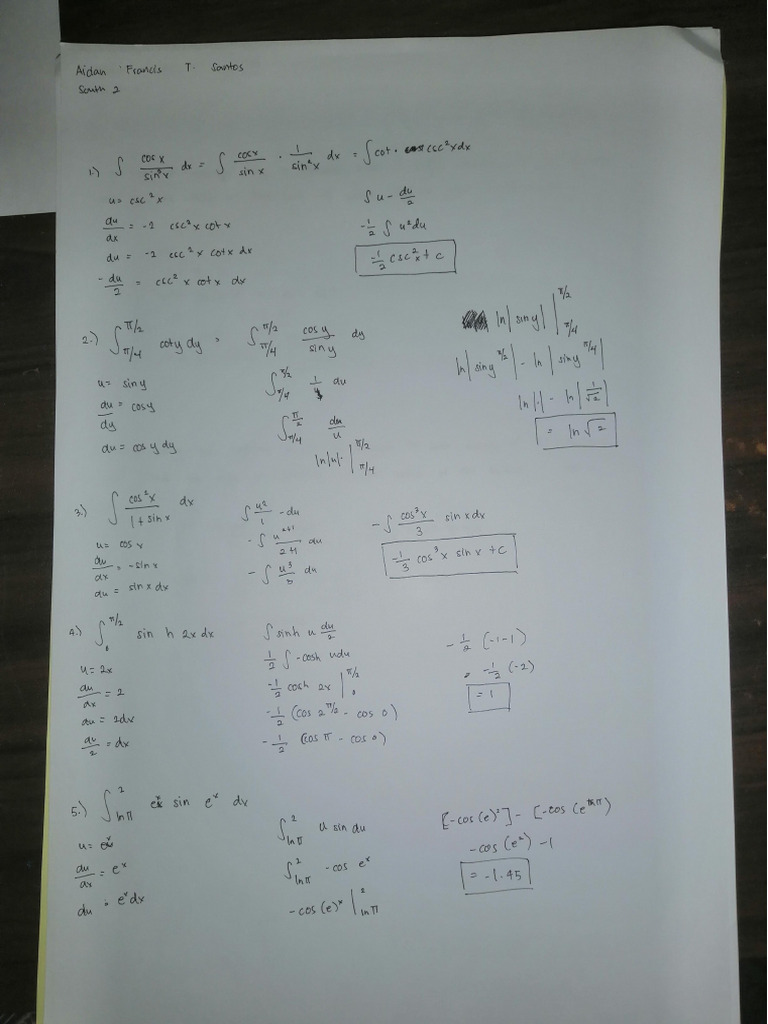 Aidan Francis T. Santos
South 2
1.) ∫ cos x / sin³x dx = ∫ cosx / sin x · 1 / sin²x dx = ∫ cot · csc²x dx
u = csc²x
du/dx = -2 csc²x cot x
du = -2 csc²x cotx dx
-du/2 = csc²x cotx dx
∫ u - du/2
-1/2 ∫ u²du
-1/2 csc²x + c
2.) ∫π/4^π/2 coty dy = ∫π/4^π/2 cosy / siny dy
u = sin y
du/dy = cosy
du = cosy dy
∫π/4^π/2 1/u du
∫π/4^π/2 du/u
ln|u| |π/4^π/2
ln|siny| |π/4^π/2
ln|siny^π/2| - ln|siny^π/4|
ln|1| - ln|1/√2|
= ln√2
3.) ∫ cos²x / 1 + sinx dx
u = cos x
du/dx = -sin x
du = sin x dx
∫ u²/1 -du
-∫ u^2+1 / 2+1 du
-∫ u³/3 du
-∫ cos³x / 3 sin x dx
-1/3 cos³x sin x + C
4.) ∫0^π/2 sin h 2x dx
u = 2x
du/dx = 2
du = 2dx
du/2 = dx
∫ sinh u du/2
1/2 ∫ -cosh u du
-1/2 cosh 2x |0^π/2
-1/2 (cos 2^π/2 - cos 0)
-1/2 (cos π - cos 0)
-1/2 (-1-1)
= -1/2 (-2)
= 1
5.) ∫lnπ^2 e^x sin e^x dx
u = e^x
du/dx = e^x
du = e^x dx
∫lnπ^2 u sin du
∫lnπ^2 -cos e^x
-cos(e)^x |lnπ^2
[-cos(e)²] - [-cos(e^lnπ)
-cos(e²) - 1
= -1.45